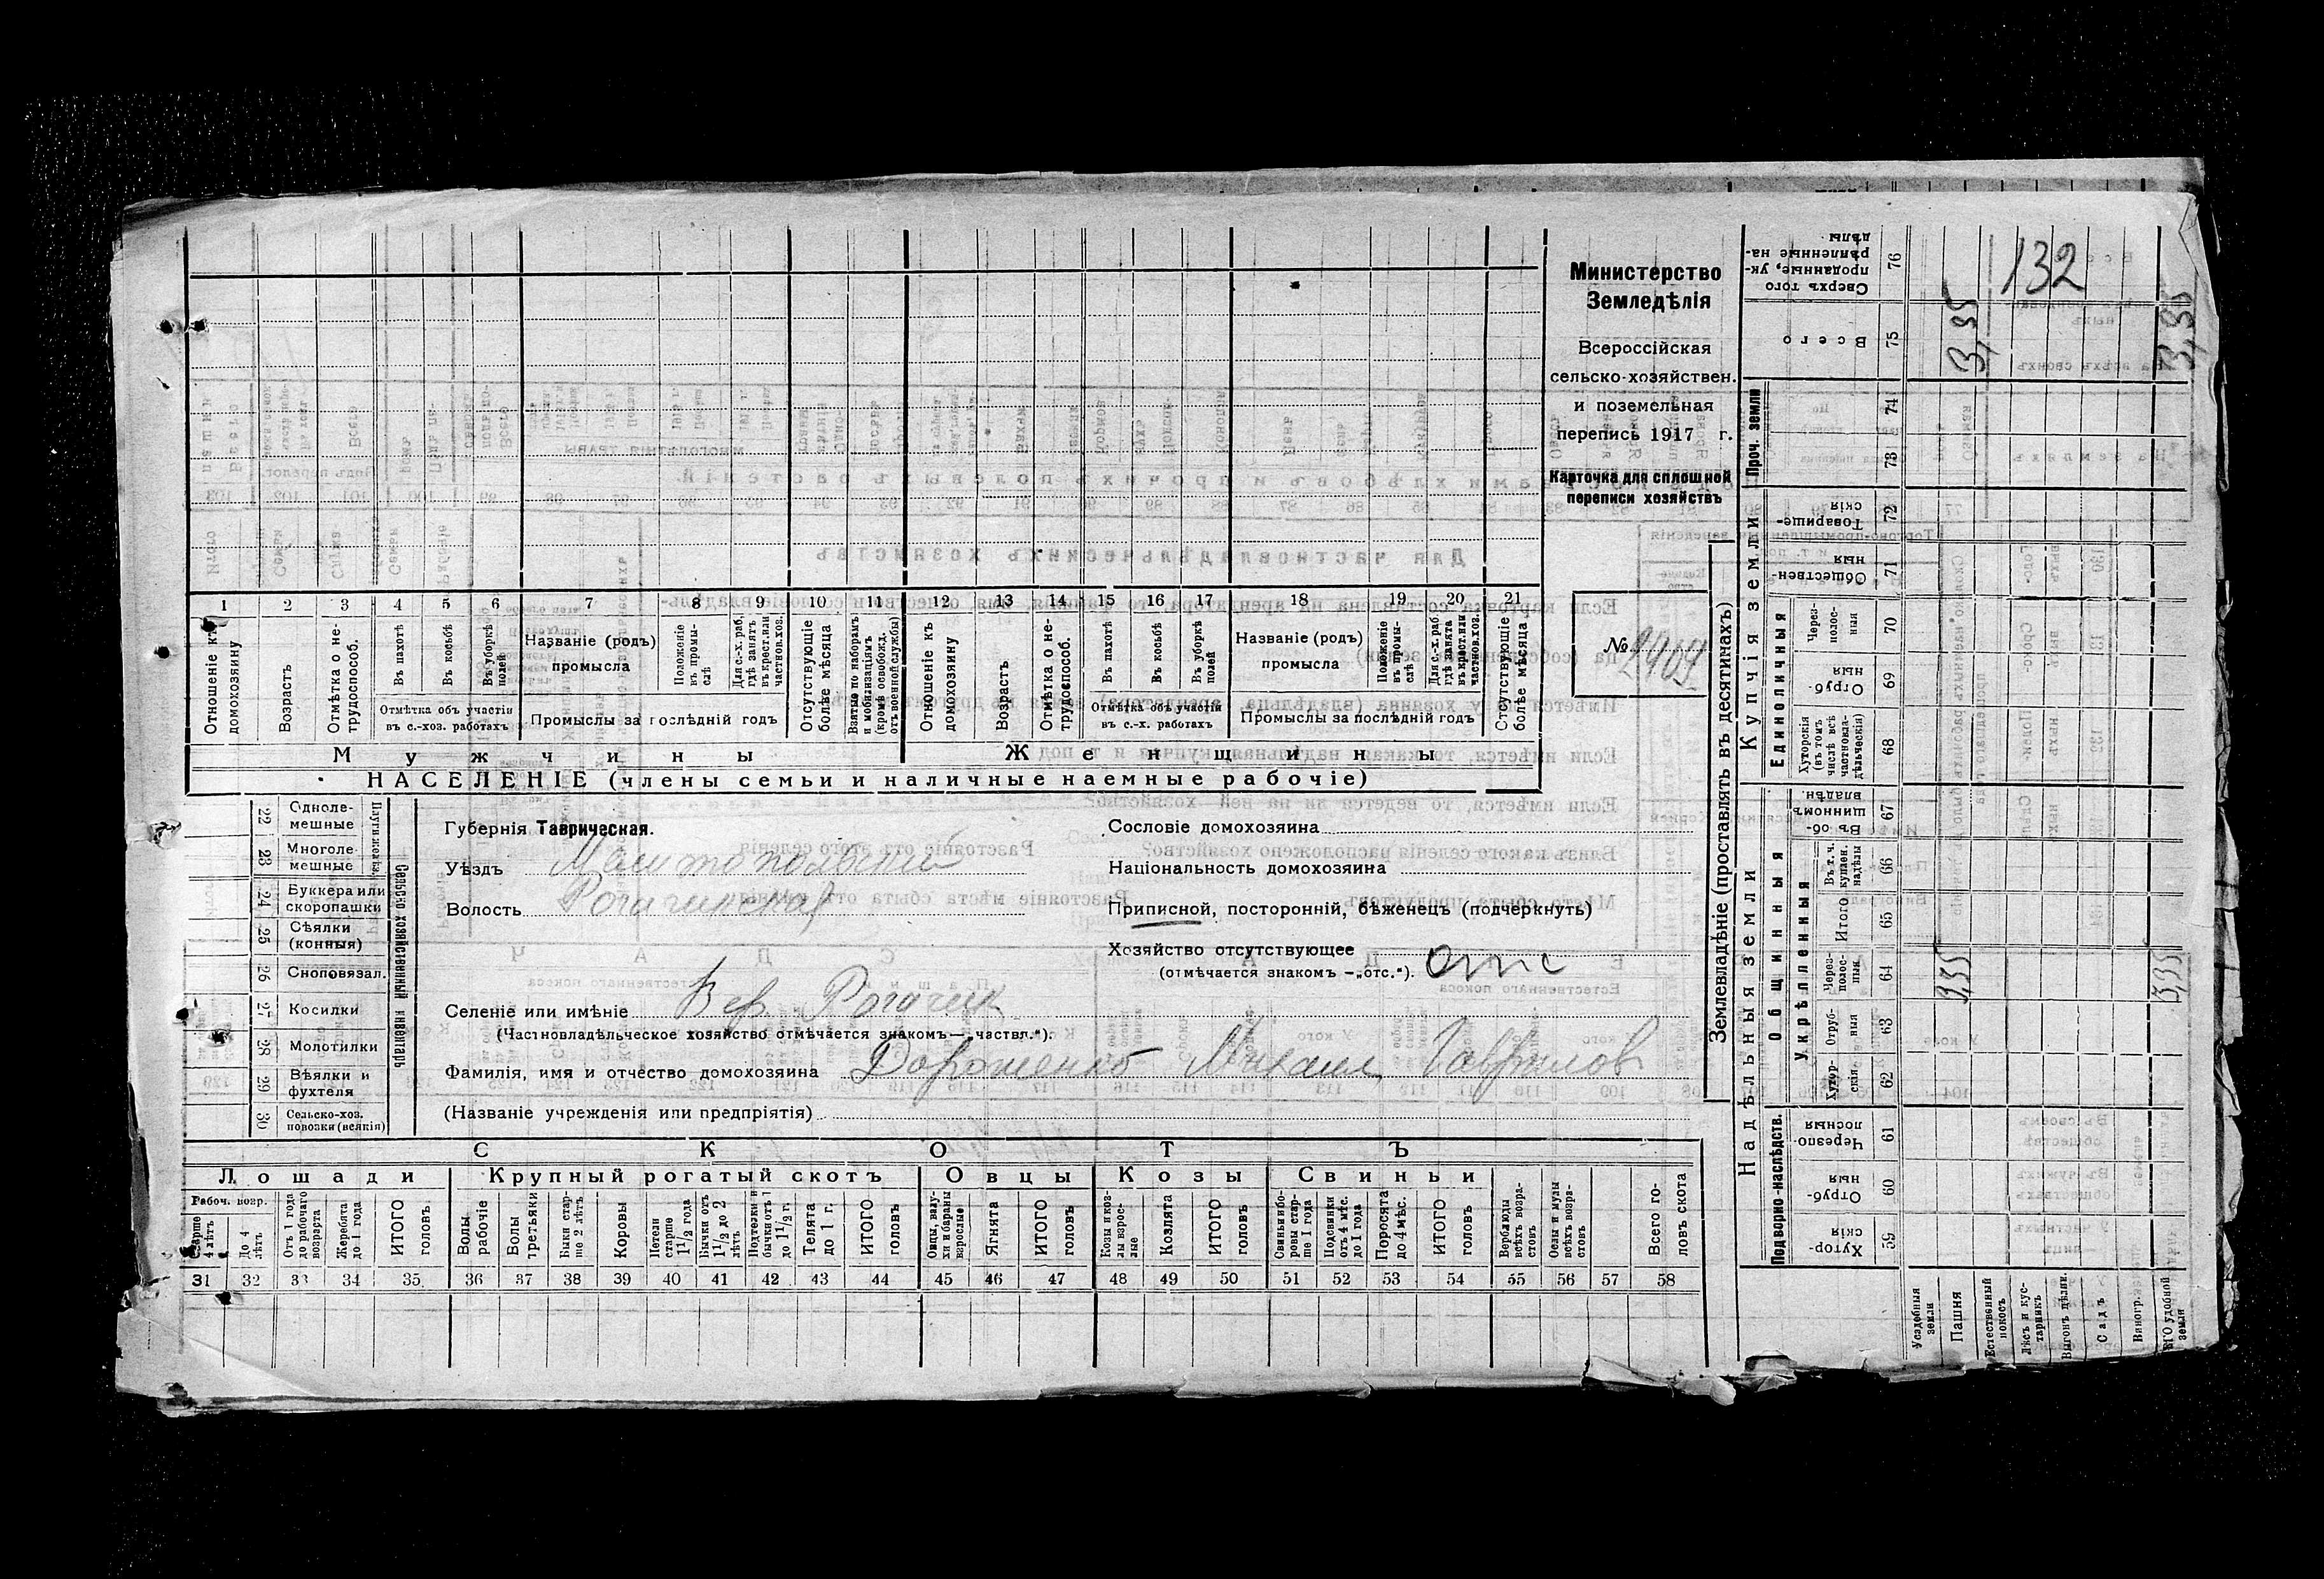 Министерство
Земледѣлія
Всероссійская
сельско-хозяйствен.
и поземельная
перепись 1917 г.
Карточка для сплошной
переписи хозяйствъ
№ 2409
132
1 2 3 4 5 6 7 8 9 10 11 12 13 14 15 16 17 18 19 20 21
Отношеніе къ домохозяину
Возрастъ
Отмѣтка о не-трудоспособ.
Въ пахотѣ
Въ косьбѣ
Въ уборкѣ полей
Отмѣтка объ участіи въ с.-хоз. работахъ
Названіе (родъ) промысла
Положеніе въ промы-слѣ
Для с.-х. раб. гдѣ занятъ въ крест. или частнов. хоз.
Промыслы за послѣдній годъ
Отсутствующіе болѣе мѣсяца
Взятые по наборамъ и мобилизаціямъ (кромѣ освобожд. отъ военной службы)
Отношеніе къ домохозяину
Возрастъ
Отмѣтка о не-трудоспособ.
Въ пахотѣ
Въ косьбѣ
Въ уборкѣ полей
Отмѣтка объ участіи въ с.-х. работахъ
Названіе (родъ) промысла
Положеніе въ промы-слѣ
Для с.-х. раб. гдѣ занята въ крест. или частнов. хоз.
Промыслы за послѣдній годъ
Отсутствующіе болѣе мѣсяца
Мужчины Женщины
НАСЕЛЕНІЕ (члены семьи и наличные наемные рабочіе)
Сельско хозяйственный инвентарь
22 Однолемешные
23 Многолемешные
24 Буккера или скоропашки
25 Сѣялки (конныя)
26 Сноповязал.
27 Косилки
28 Молотилки
29 Вѣялки и фухтеля
30 Сельско-хоз. повозки (всякія)
Губернія Таврическая.
Уѣздъ Мелитопольскій
Волость Рогачикская
Селеніе или имѣніе Вер. Рогачик
(Частновладѣльческое хозяйство отмѣчается знакомъ—„частвл.").
Фамилія, имя и отчество домохозяина Дороженко Михаил Гаврилов
(Названіе учрежденія или предпріятія)
Сословіе домохозяина
Національность домохозяина
Приписной, посторонній, бѣженецъ (подчеркнуть)
Хозяйство отсутствующее
(отмѣчается знакомъ —„отс."). отс
СКОТЪ
Лошади Крупный рогатый скотъ Овцы Козы Свиньи
Рабоч. возр.
Старше 4 лѣтъ
До 4 лѣтъ
Отъ 1 года до рабочаго возраста
Жеребята до 1 года
ИТОГО головъ
Волы рабочіе
Волы третьяки
Быки стар-ше 2 лѣтъ
Коровы
Нетели старше 1 1/2 года
Бычки отъ 1 1/2 до 2 лѣтъ
Подтелки и бычки отъ 1 до 1 1/2 г.
Телята до 1 г.
ИТОГО головъ
Овцы, валу-хи и бараны взрослые
Ягнята
ИТОГО головъ
Козы и коз-лы взрос-лые
Козлята
ИТОГО головъ
Свиньи и бо-ровы стар-ше 1 года
Подсвинки отъ 4 мѣс. до 1 года
Поросята до 4 мѣс.
ИТОГО головъ
Верблюды всѣхъ возра-стовъ
Ослы и мулы всѣхъ возра-стовъ
Всего го-ловъ скота
31 32 33 34 35 36 37 38 39 40 41 42 43 44 45 46 47 48 49 50 51 52 53 54 55 56 57 58
Землевладѣніе (проставлять въ десятинахъ)
Надѣльныя земли
Купчія земли
Проч. земли
Подворно-наслѣдств.
Общинныя
Укрѣпленныя
Единоличныя
59 Хутор-скія
60 Отруб-ныя
61 Черезпо-лосныя
62 Хутор-скія
63 Отруб-ныя
64 Через-полос-ныя
65 Итого
66 Въ т. ч. куплен. надѣлы
67 Въ об-щинномъ владѣн.
68 Хуторскія (въ томъ числѣ всѣ частновла-дѣльческія)
69 Отруб-ныя
70 Через-полос-ныя
71 Обществен-ныя
72 Товарище-скія
73
74
75 Всего
76 Сверхъ того проданные, ук-рѣпленные на-дѣлы
Усадебныя земли
Пашня
Естественный покосъ
Лѣсъ и кус-тарникъ
Выгонъ дѣлим.
Садъ
Виногр.
ИТОГО удобной земли
3,35
3,35
3,35
3,35